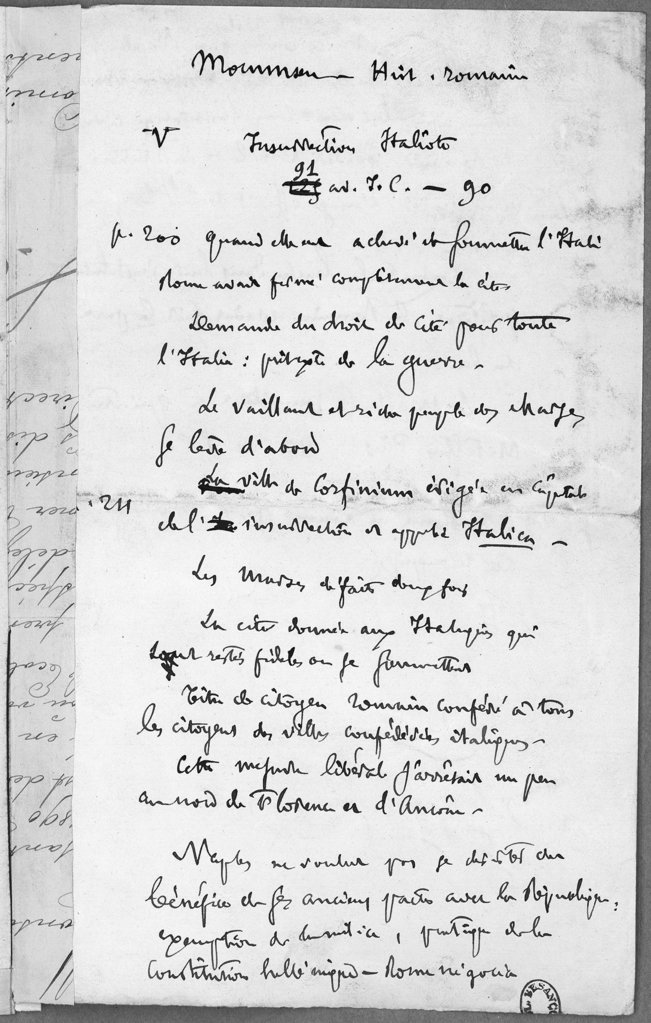 Mommsen – Hist. romaine
V Insurrection Italiote
91
av. J. C. – 90
p. 200 quand elle eut achevé de soumettre l'Italie
Rome avait fermé complètement la cité
Demande du droit de cité pour toute
l'Italie : prétexte de la guerre –
Le vaillant et riche peuple des Marses
se leva d'abord
La ville de Corfinium érigée en capitale
. 211 de l'insurrection et appelée Italica –
Les Marses défaits deux fois
La cité donnée aux Italiques qui
sont restés fidèles ou se soumettent
Titre de citoyen romain conféré à tous
les citoyens des villes confédérées italiques –
Cette mesure libérale s'arrêtait un peu
au nord de Florence et d'Ancône –
Naples ne voulut pas se désister du
bénéfice de ses anciens pactes avec la République :
exemption de la milice, pratique de la
Constitution hellénique – Rome négocia
BESANÇO